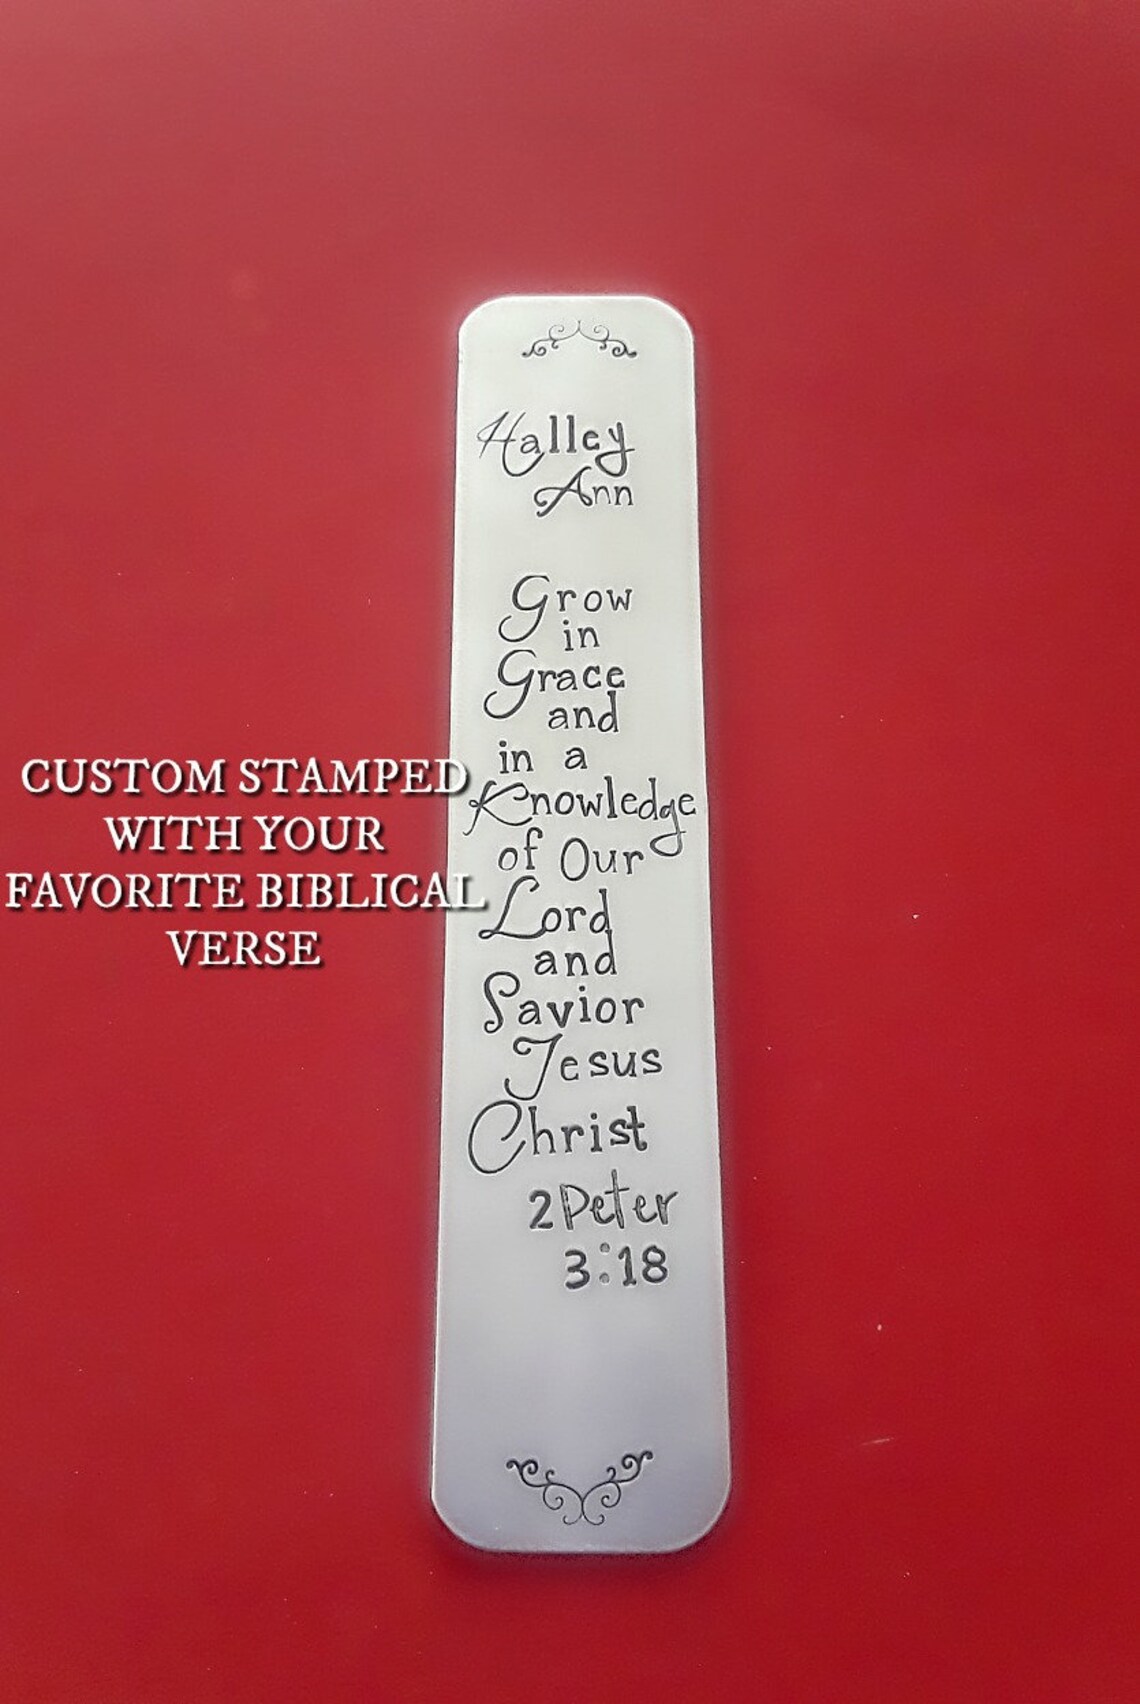 Halley
Ann
Grow
in
Grace
and
in a
Knowledge
of Our
Lord
and
Savior
Jesus
Christ
2 Peter
3:18
CUSTOM STAMPED
WITH YOUR
FAVORITE BIBLICAL
VERSE